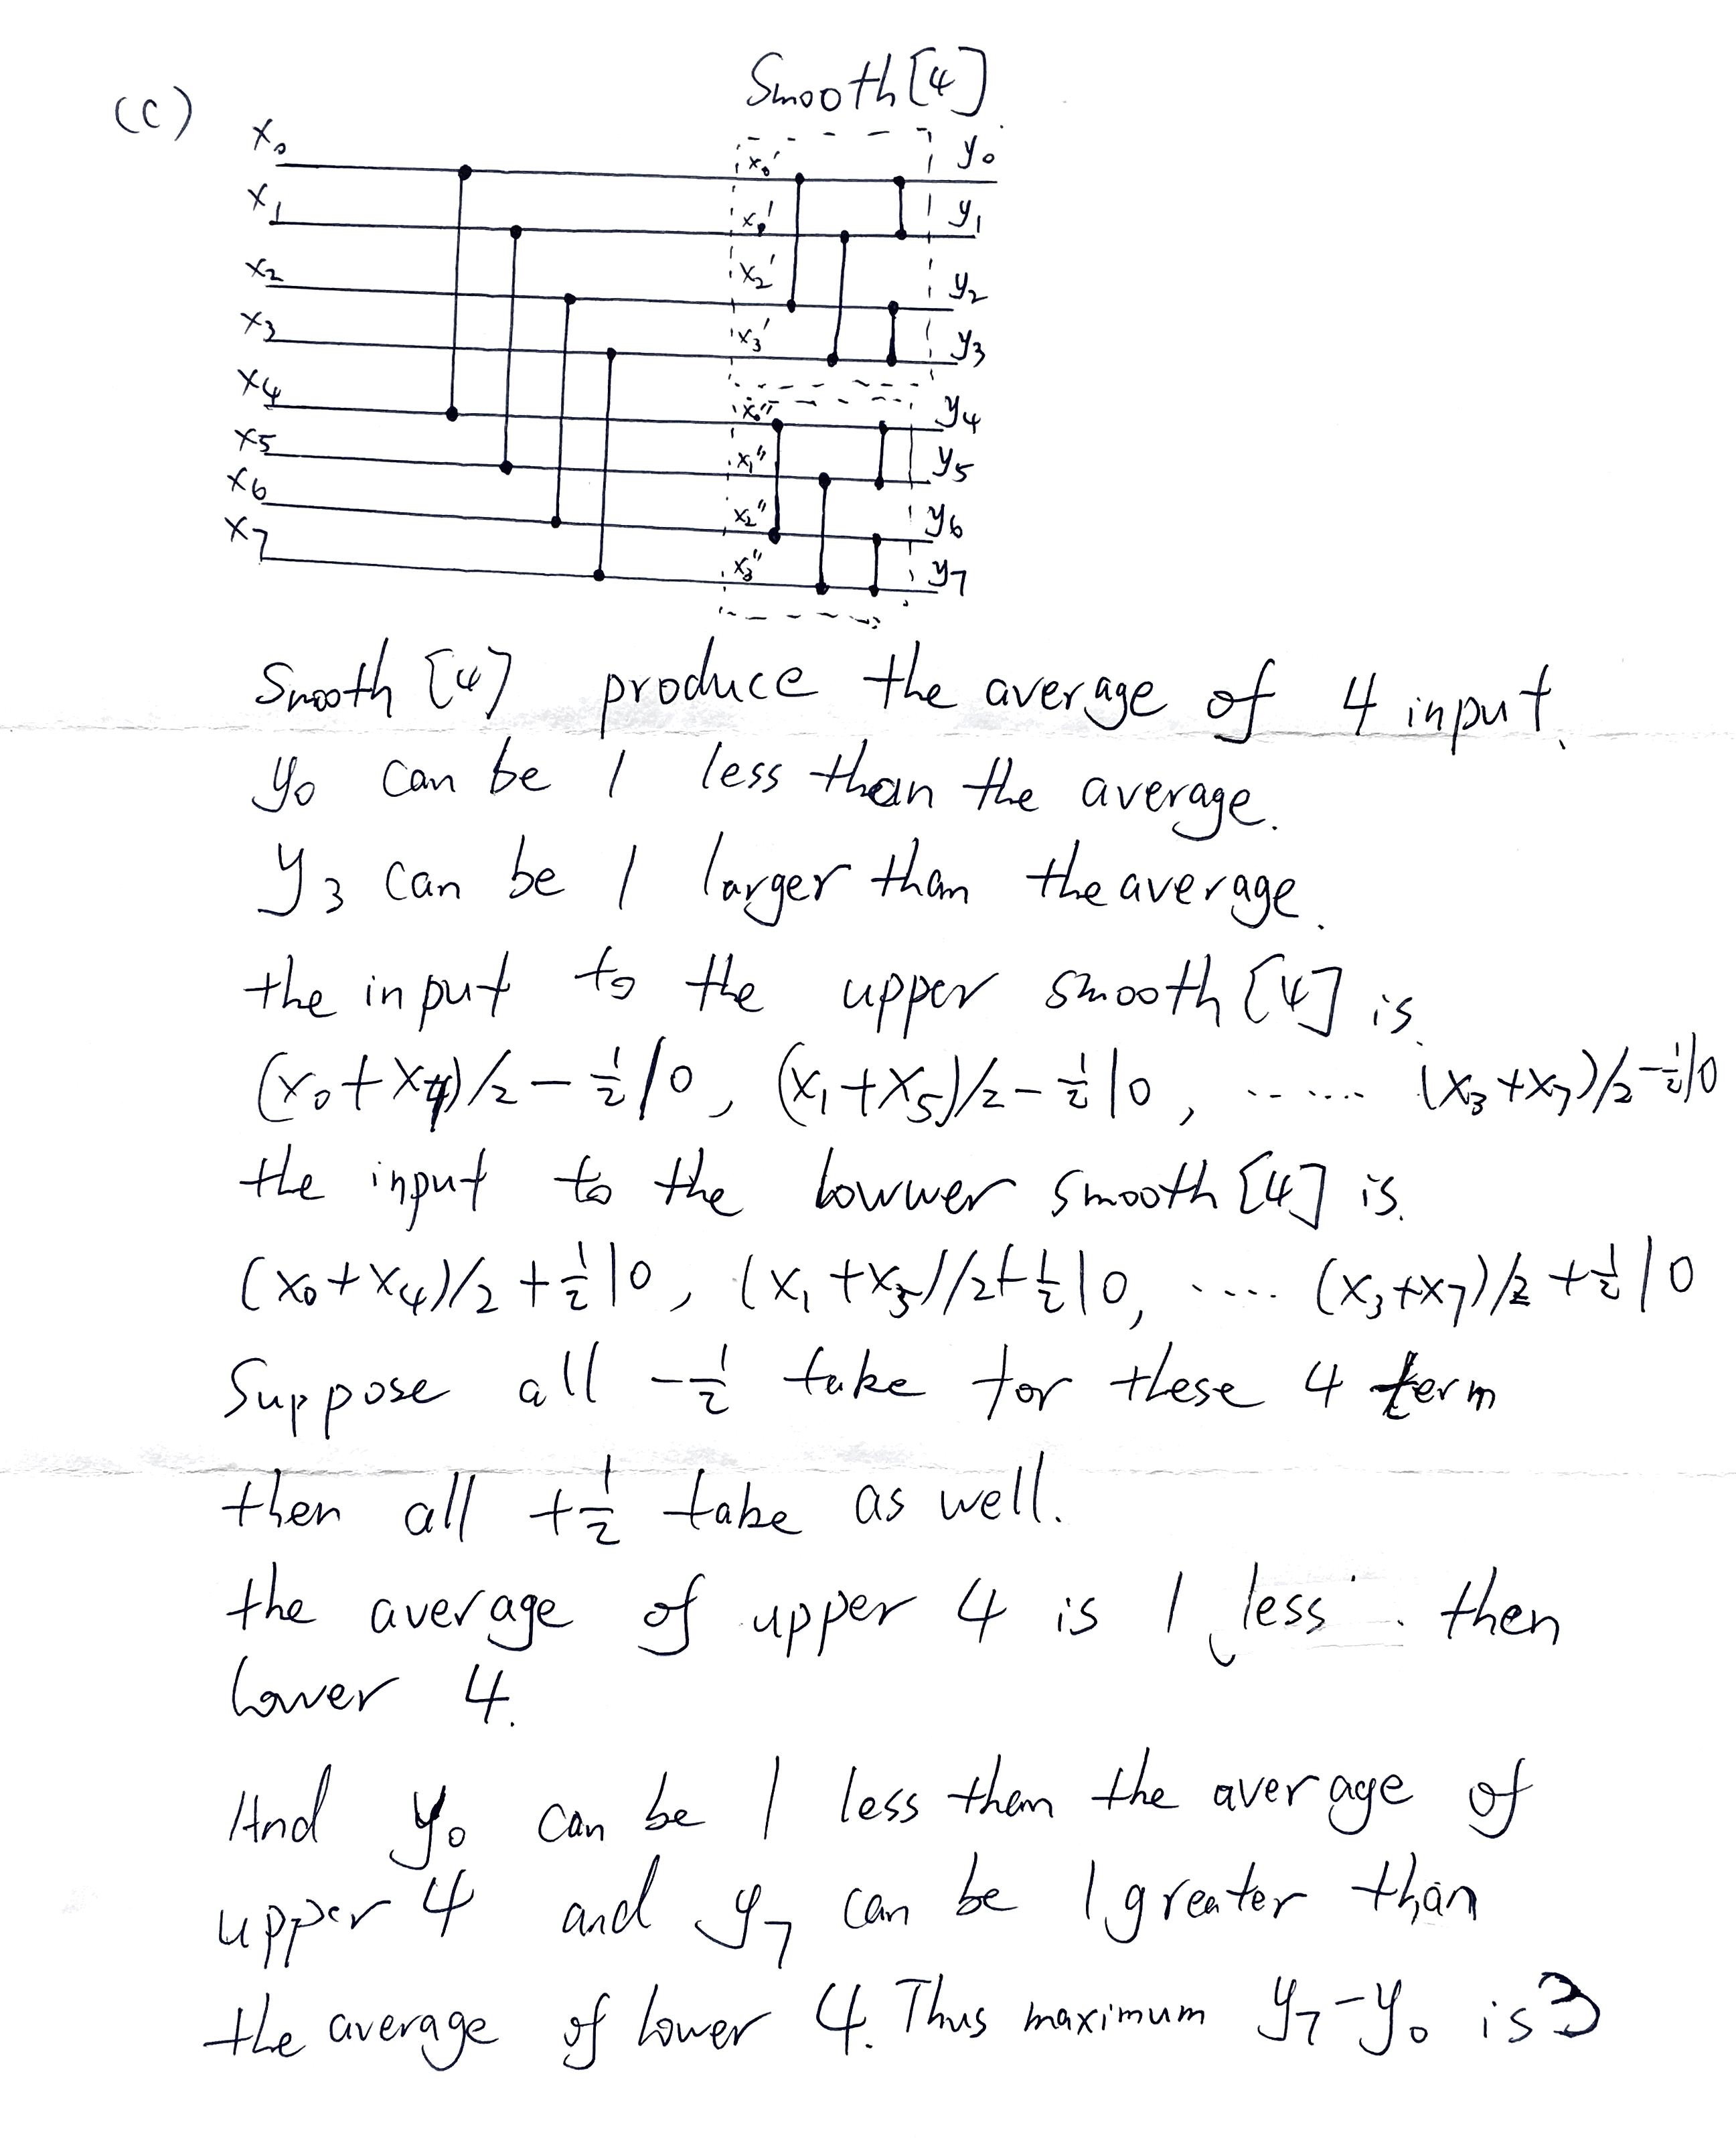 (c)
Smooth [4]
x0
x0'
y0
x1
x1'
y1
x2
x2'
y2
x3
x3'
y3
x4
x0''
y4
x5
x1''
y5
x6
x2''
y6
x7
x3''
y7
Smooth [4] produce the average of 4 input.
y0 can be 1 less than the average.
y3 can be 1 larger than the average.
the input to the upper smooth [4] is.
(x0+x4)/2 - 1/2|0, (x1+x5)/2 - 1/2|0, ...... (x3+x7)/2 - 1/2|0
the input to the lowwer smooth [4] is.
(x0+x4)/2 + 1/2|0, (x1+x5)/2 + 1/2|0, .... (x3+x7)/2 + 1/2|0
Suppose all -1/2 take for these 4 term
then all +1/2 take as well.
the average of upper 4 is 1 less then
lower 4.
And y0 can be 1 less then the average of
upper 4 and y7 can be 1 greater than
the average of lower 4. Thus maximum y7-y0 is 3